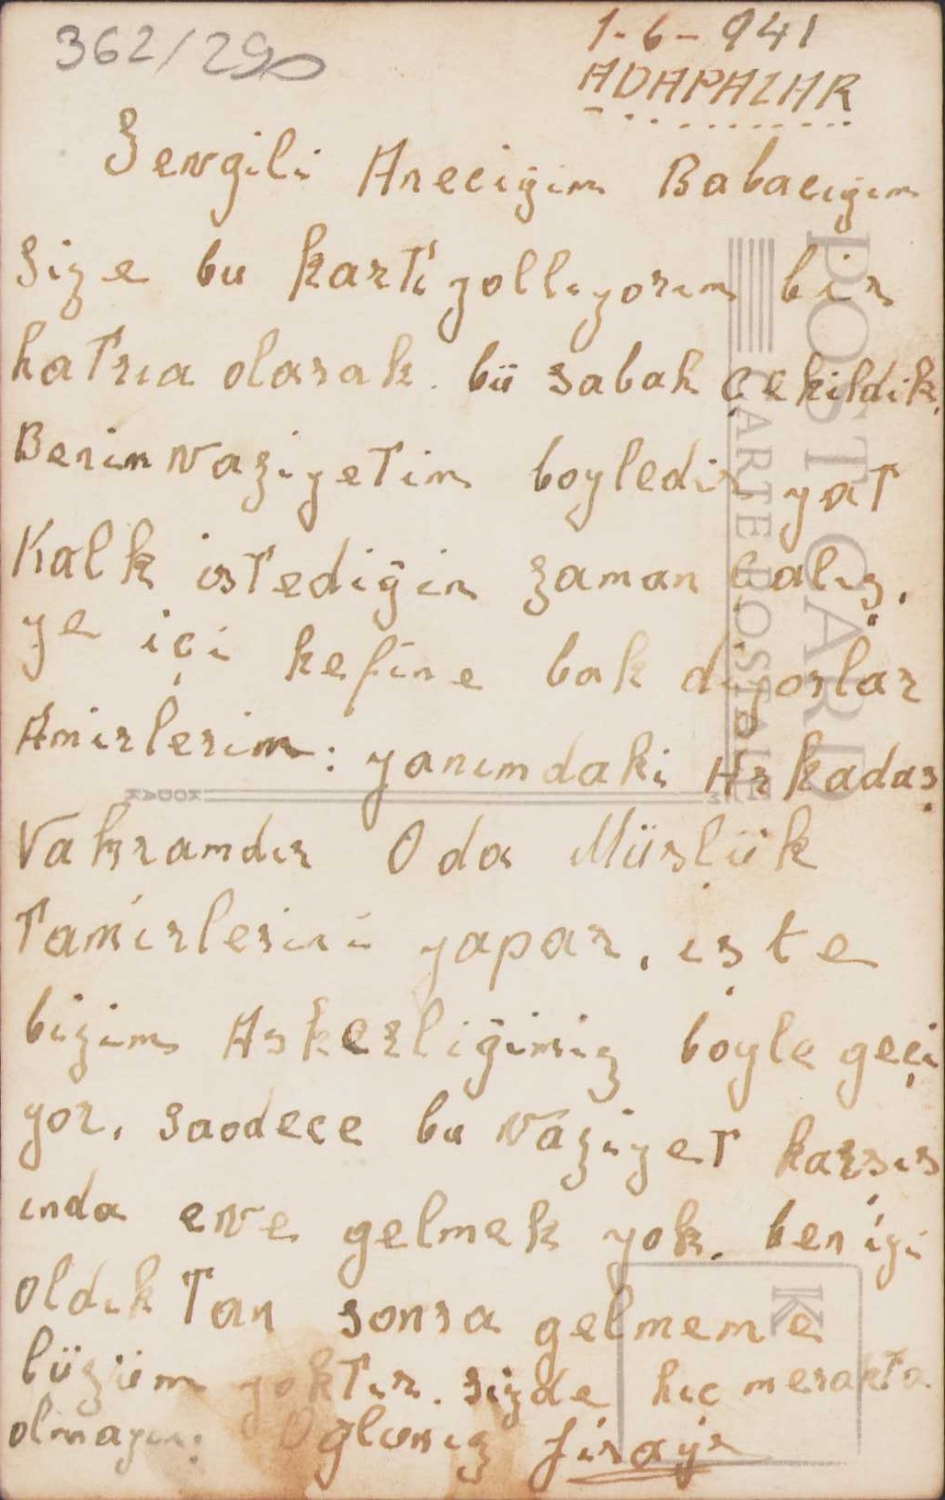 362/290
1-6-941
ADAPAZAR
Sevgili Aneciğim Babacığım
size bu kartı yollıyorım bir
hatrıa olarak. bü sabah çekildik.
Benim vaziyetim boyledir yat
Kalk istediğin zaman çalış.
ye içi kefine bak diyorlar
Amirlerim: yanımdaki Arkadaş
Vahramdır Oda Müslük
Tamirlerini yapar. işte
bizim Askerliğimiz boyle geçi
yor. saodece bu vaziyet karşıs
ında eve gelmek yok. ben iyi
oldık Tan sonra gelmeme
lüzüm yoktır. sizde hic merakta
olmayın. Oğlunız Jirayr
POST CARD
CARTE POSTALE
KODAK
K